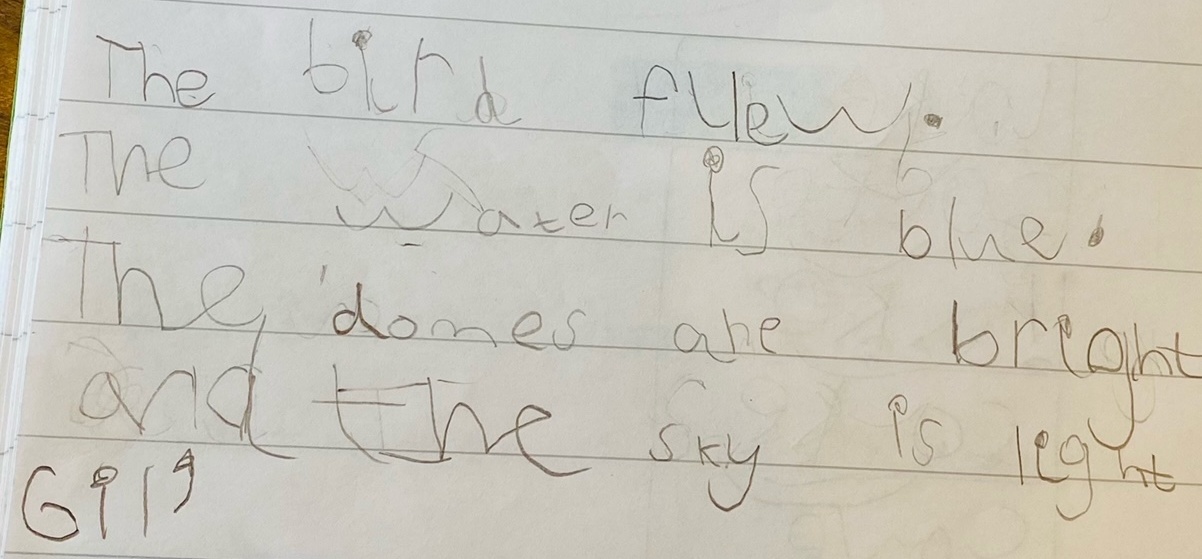 The bird fllew.
The water is blue.
The domes are bright
and the sky is light